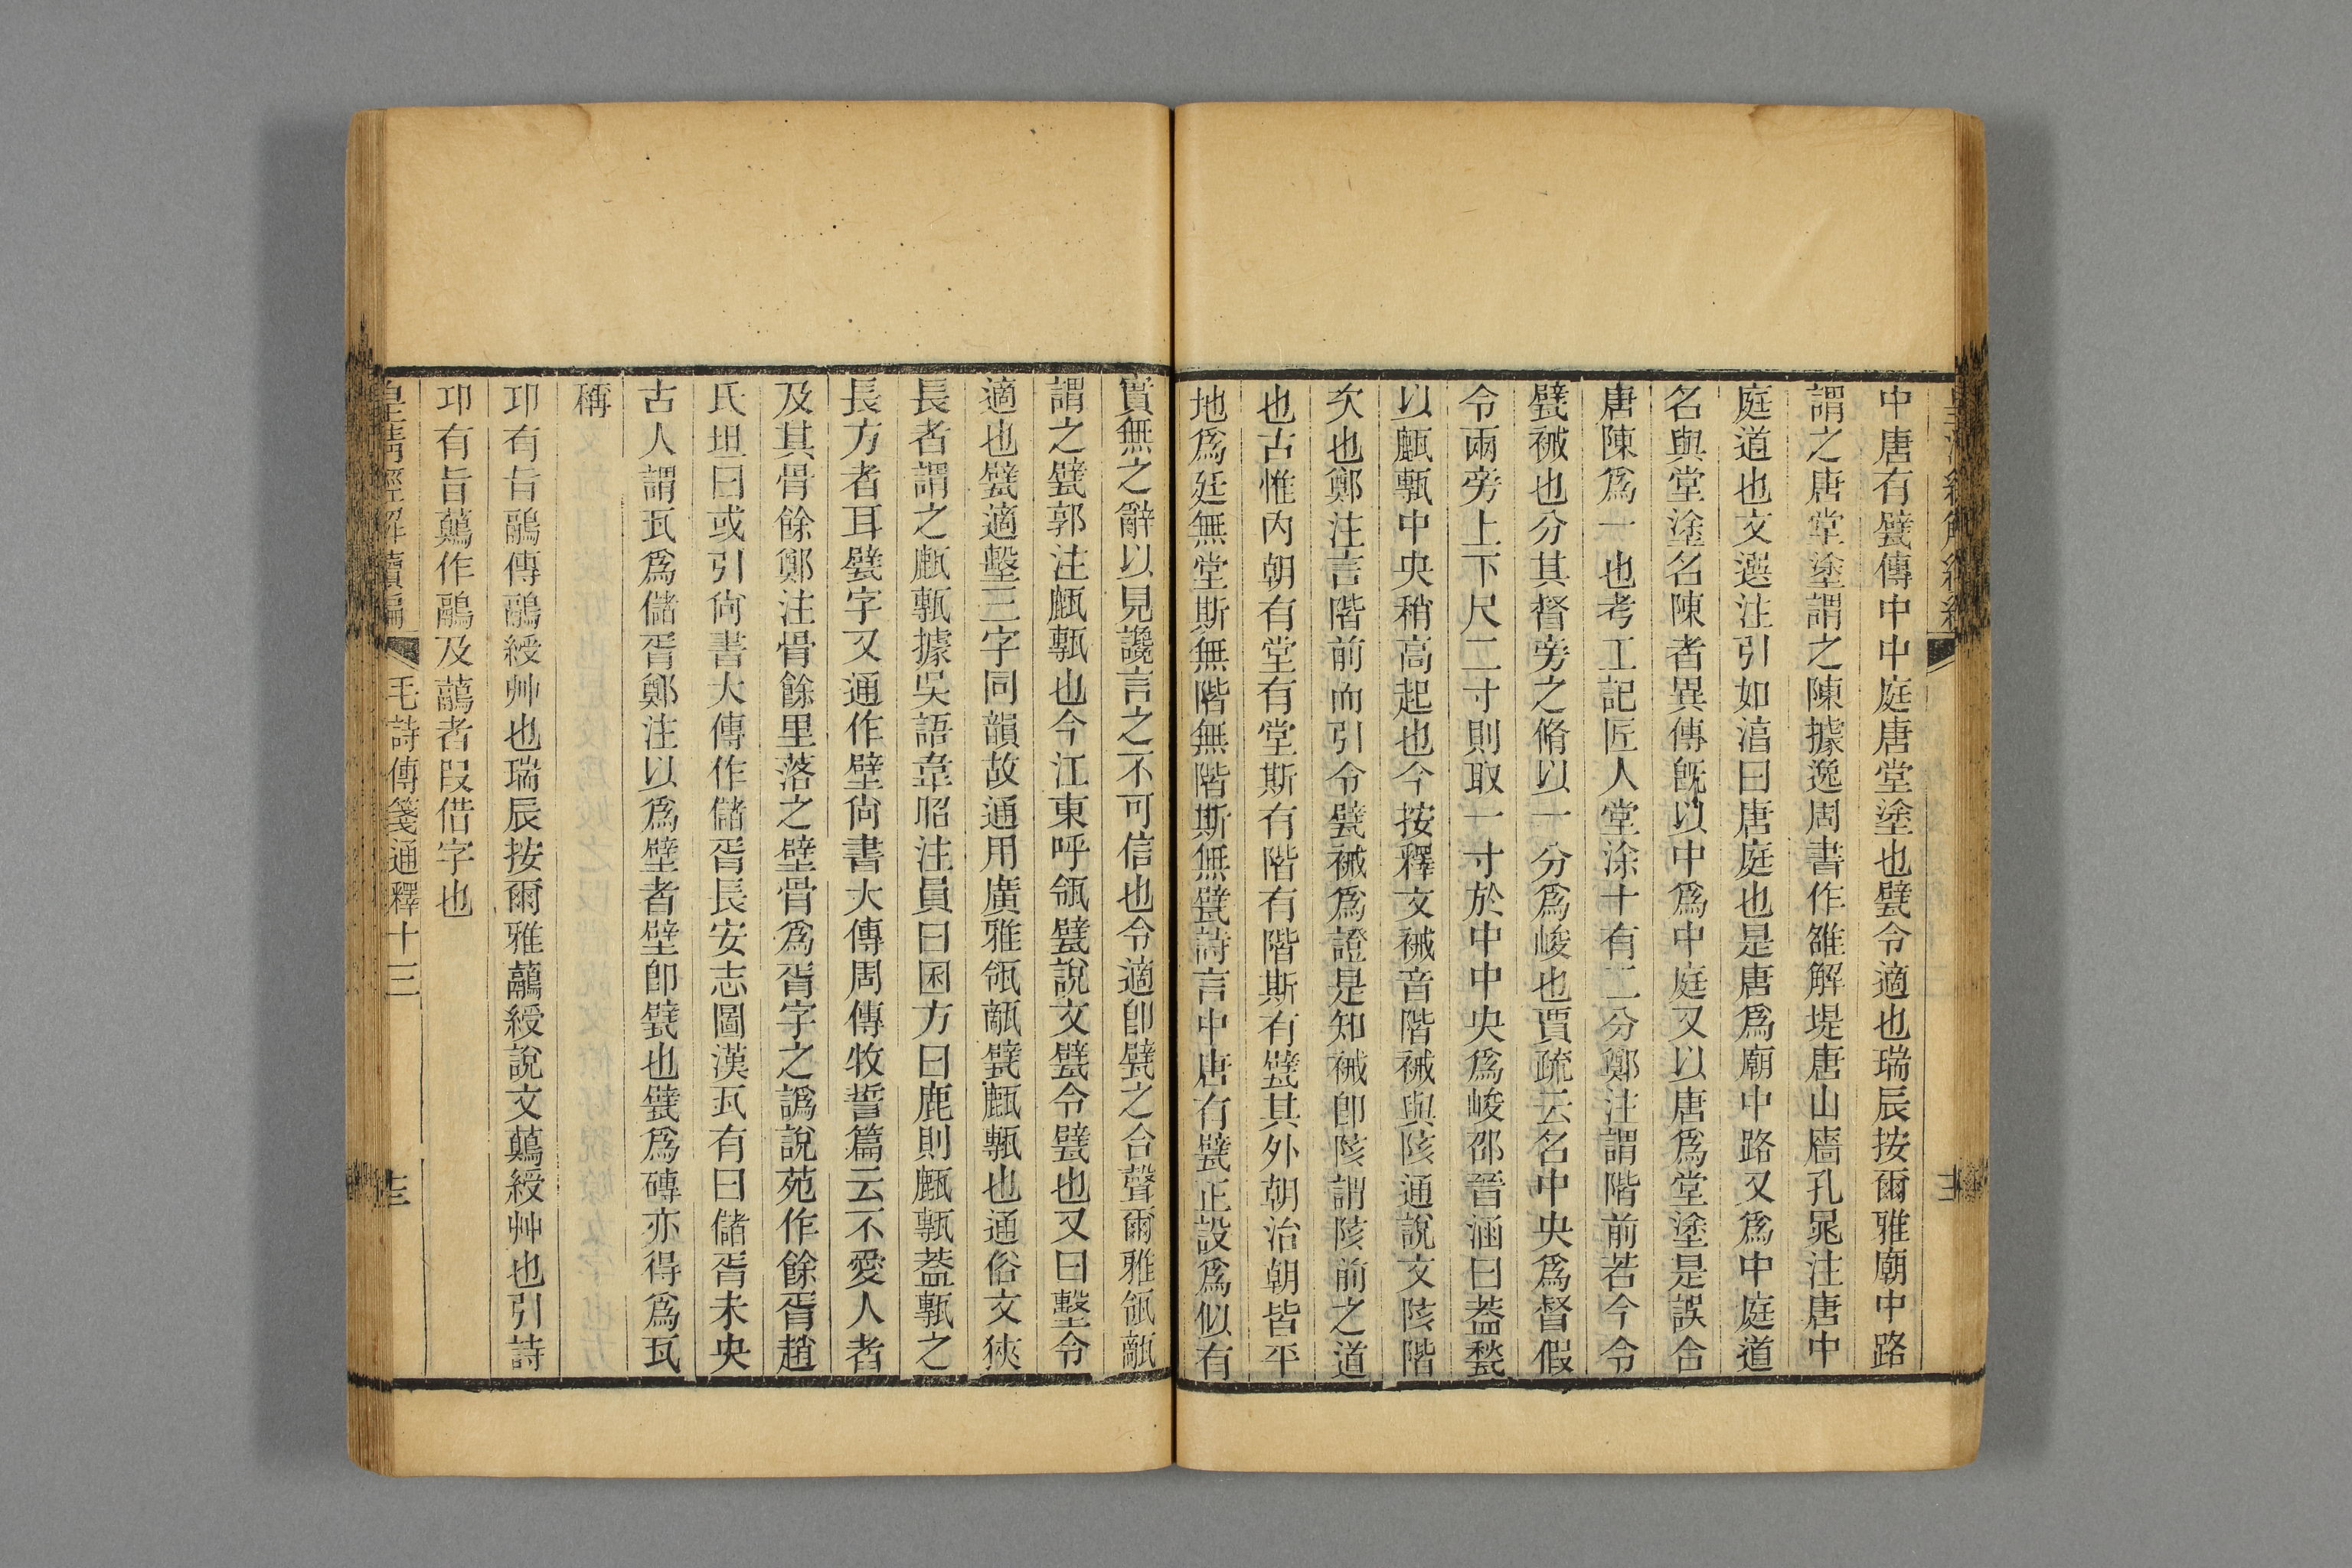 中唐有甓傳中中庭唐堂塗也甓令適也瑞辰按爾雅廟中路
謂之唐堂塗謂之陳據逸周書作雒解堤唐山廧孔晁注唐中
庭道也文選注引如淳曰唐庭也是唐爲廟中路又爲中庭道
名與堂塗名陳者異傳旣以中爲中庭又以唐爲堂塗是誤合
唐陳爲一也考工記匠人堂涂十有二分鄭注謂階前若今令
甓裓也分其督旁之脩以一分爲峻也賈疏云名中央爲督假
令兩旁上下尺二寸則取一寸於中中央爲峻邵晉涵曰葢甃
以㼾甎中央稍高起也今按釋文裓音階裓與陔通說文陔階
次也鄭注言階前而引令甓裓爲證是知裓卽陔謂陔前之道
也古惟內朝有堂有堂斯有階有階斯有甓其外朝治朝皆平
地爲廷無堂斯無階無階斯無甓詩言中唐有甓正設爲似有
實無之辭以見讒言之不可信也令適卽甓之合聲爾雅瓴甋
謂之甓郭注㼾甎也今江東呼瓴甓說文甓令甓也又曰墼令
適也甓適墼三字同韻故通用廣雅瓴甋甓㼾甎也通俗文狹
長者謂之㼾甎據吳語韋昭注員曰囷方曰鹿則㼾甎葢甎之
長方者耳甓字又通作壁尙書大傳周傳牧誓篇云不愛人者
及其骨餘鄭注骨餘里落之壁骨爲胥字之譌說苑作餘胥趙
氏坦曰或引尙書大傳作儲胥長安志圖漢瓦有曰儲胥未央
古人謂瓦爲儲胥鄭注以爲壁者壁卽甓也甓爲磚亦得爲瓦
稱
邛有旨鷊傳鷊綬艸也瑞辰按爾雅虉綬說文𧃲綬艸也引詩
邛有旨𧃲作鷊及虉者叚借字也
皇淸經解續編
毛詩傳箋通釋十三